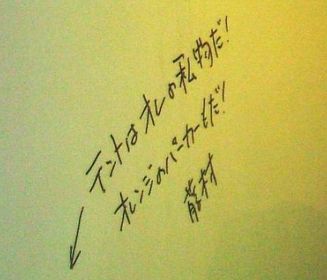 テントはオレの私物だ!
オレンジのパーカーもだ!